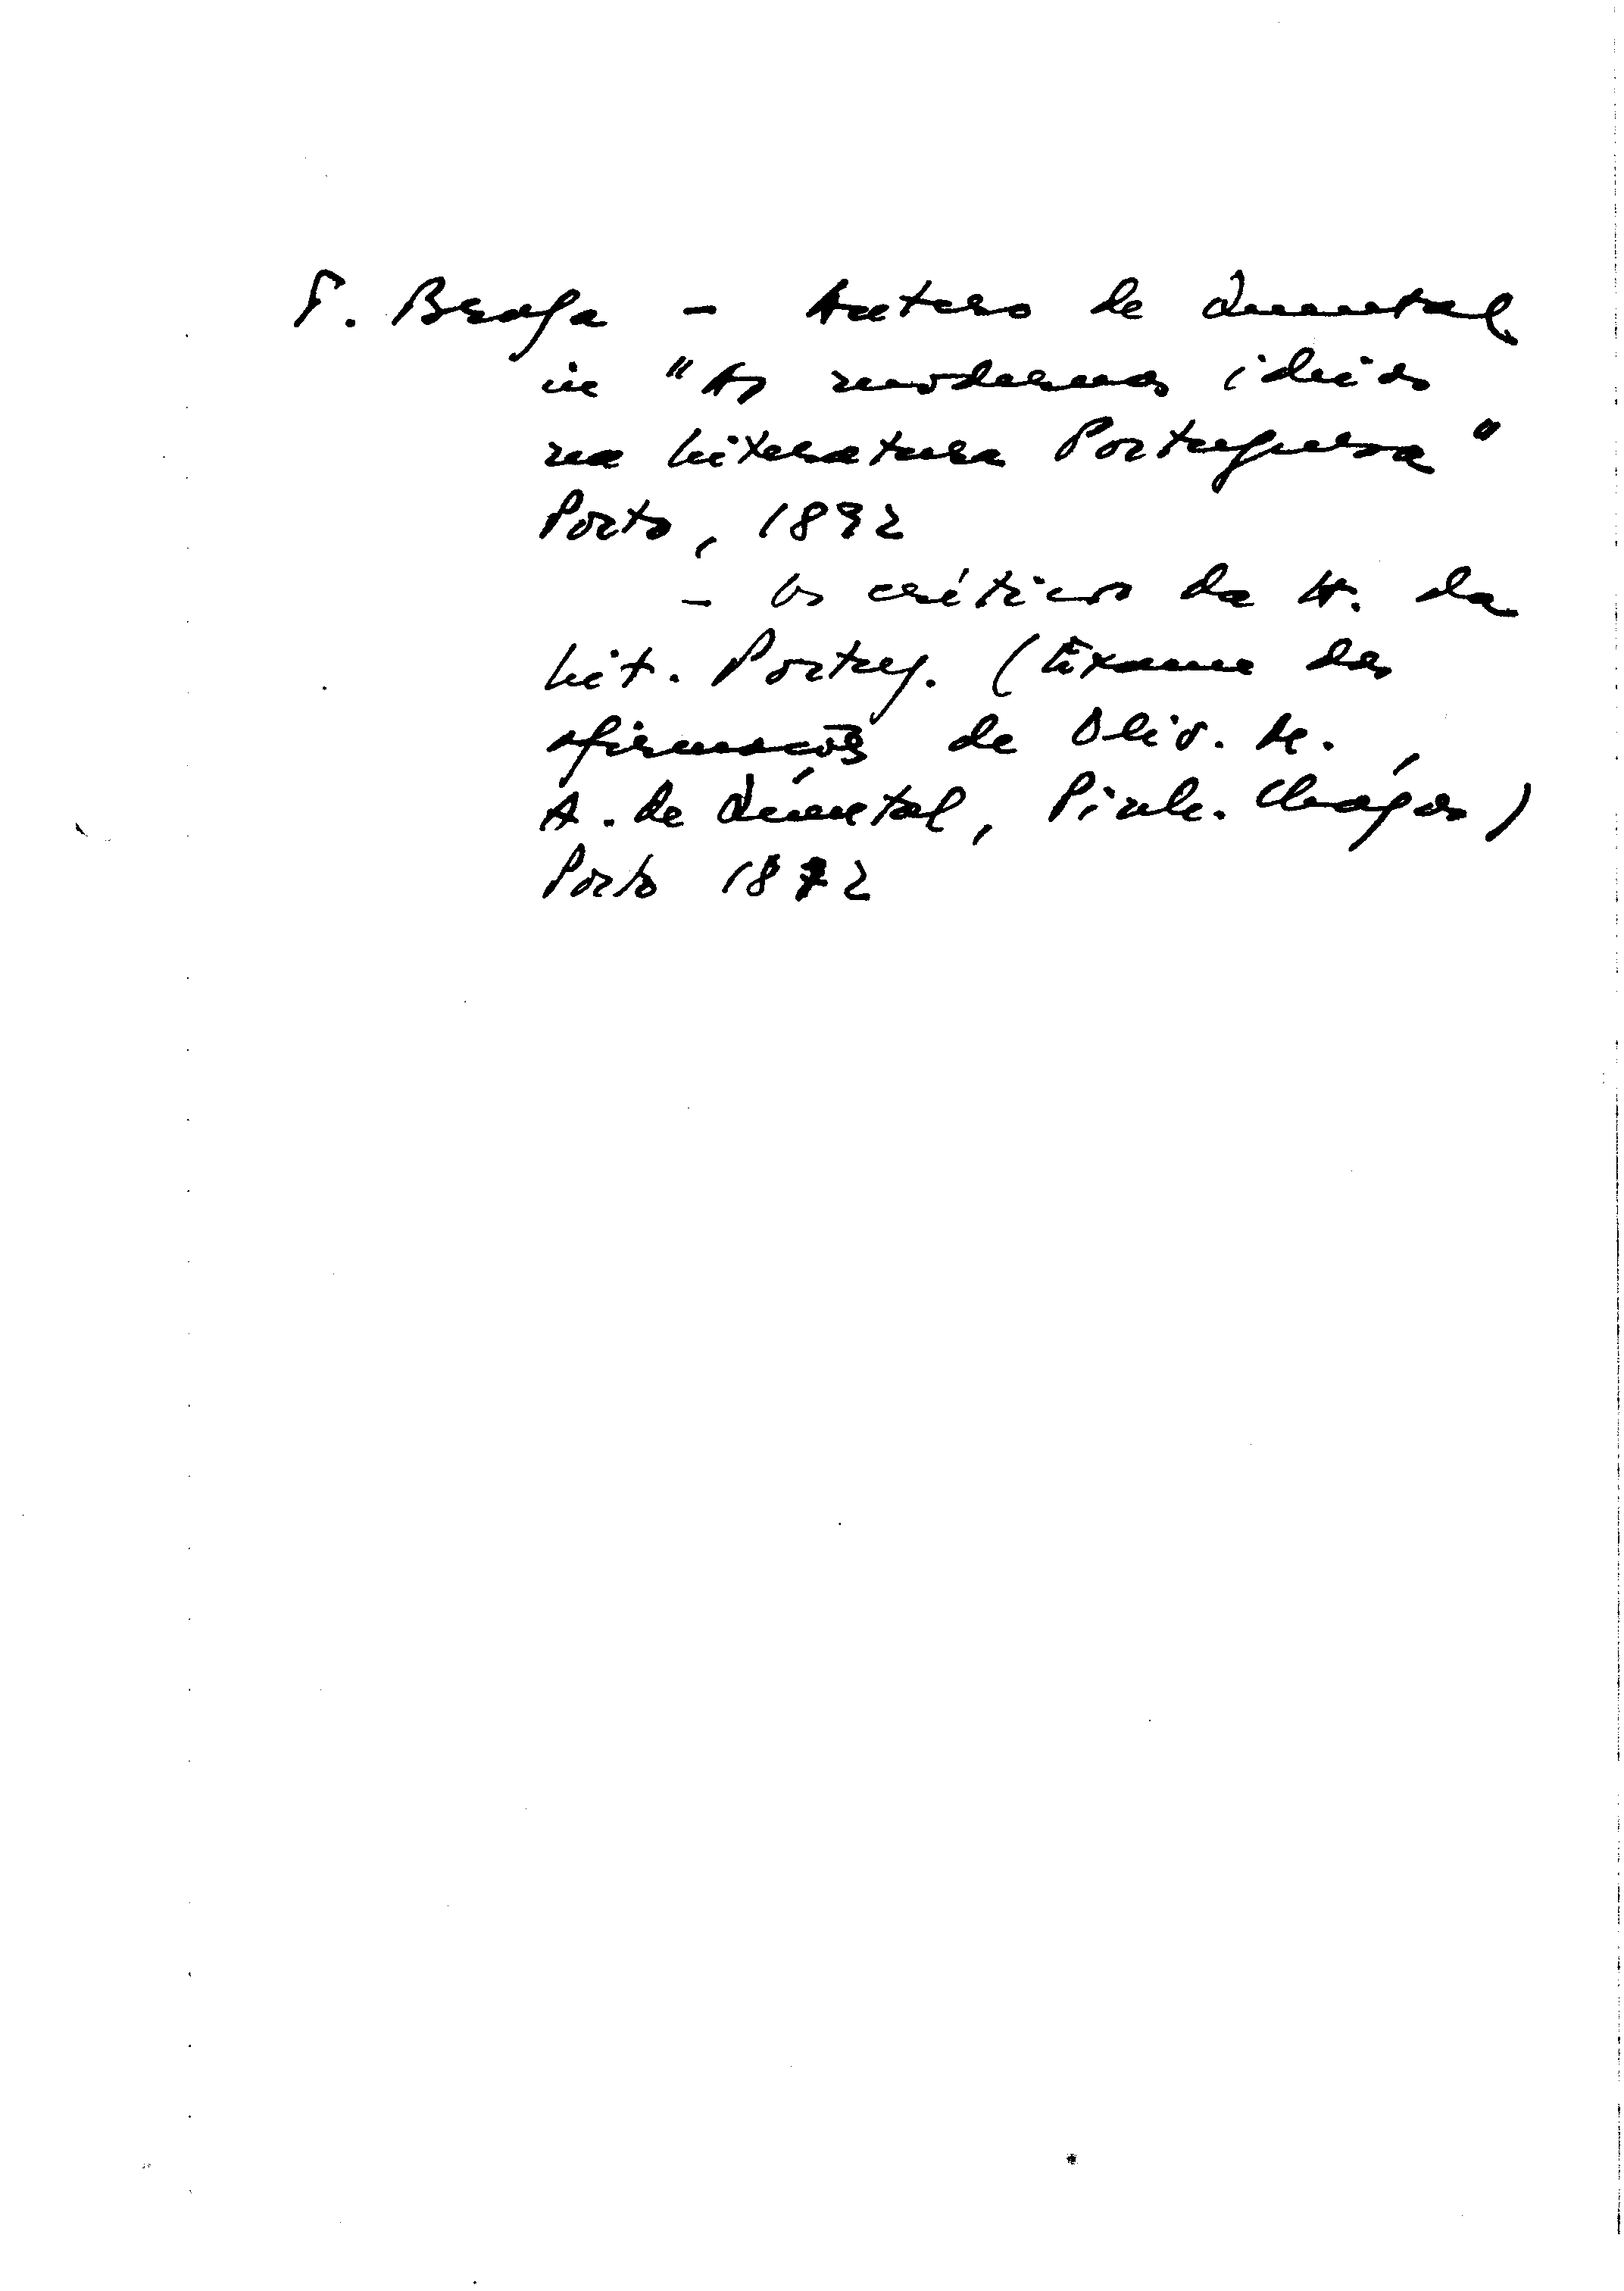 T. Braga - Antero de Quental
in "As modernas ideias
na literatura Portuguesa"
Porto, 1892
- Os críticos da H. da
Lit. Portug. (Exame das
afirmações de Oliv. M.,
A. de Quental, Pinh. Chagas)
Porto 1872